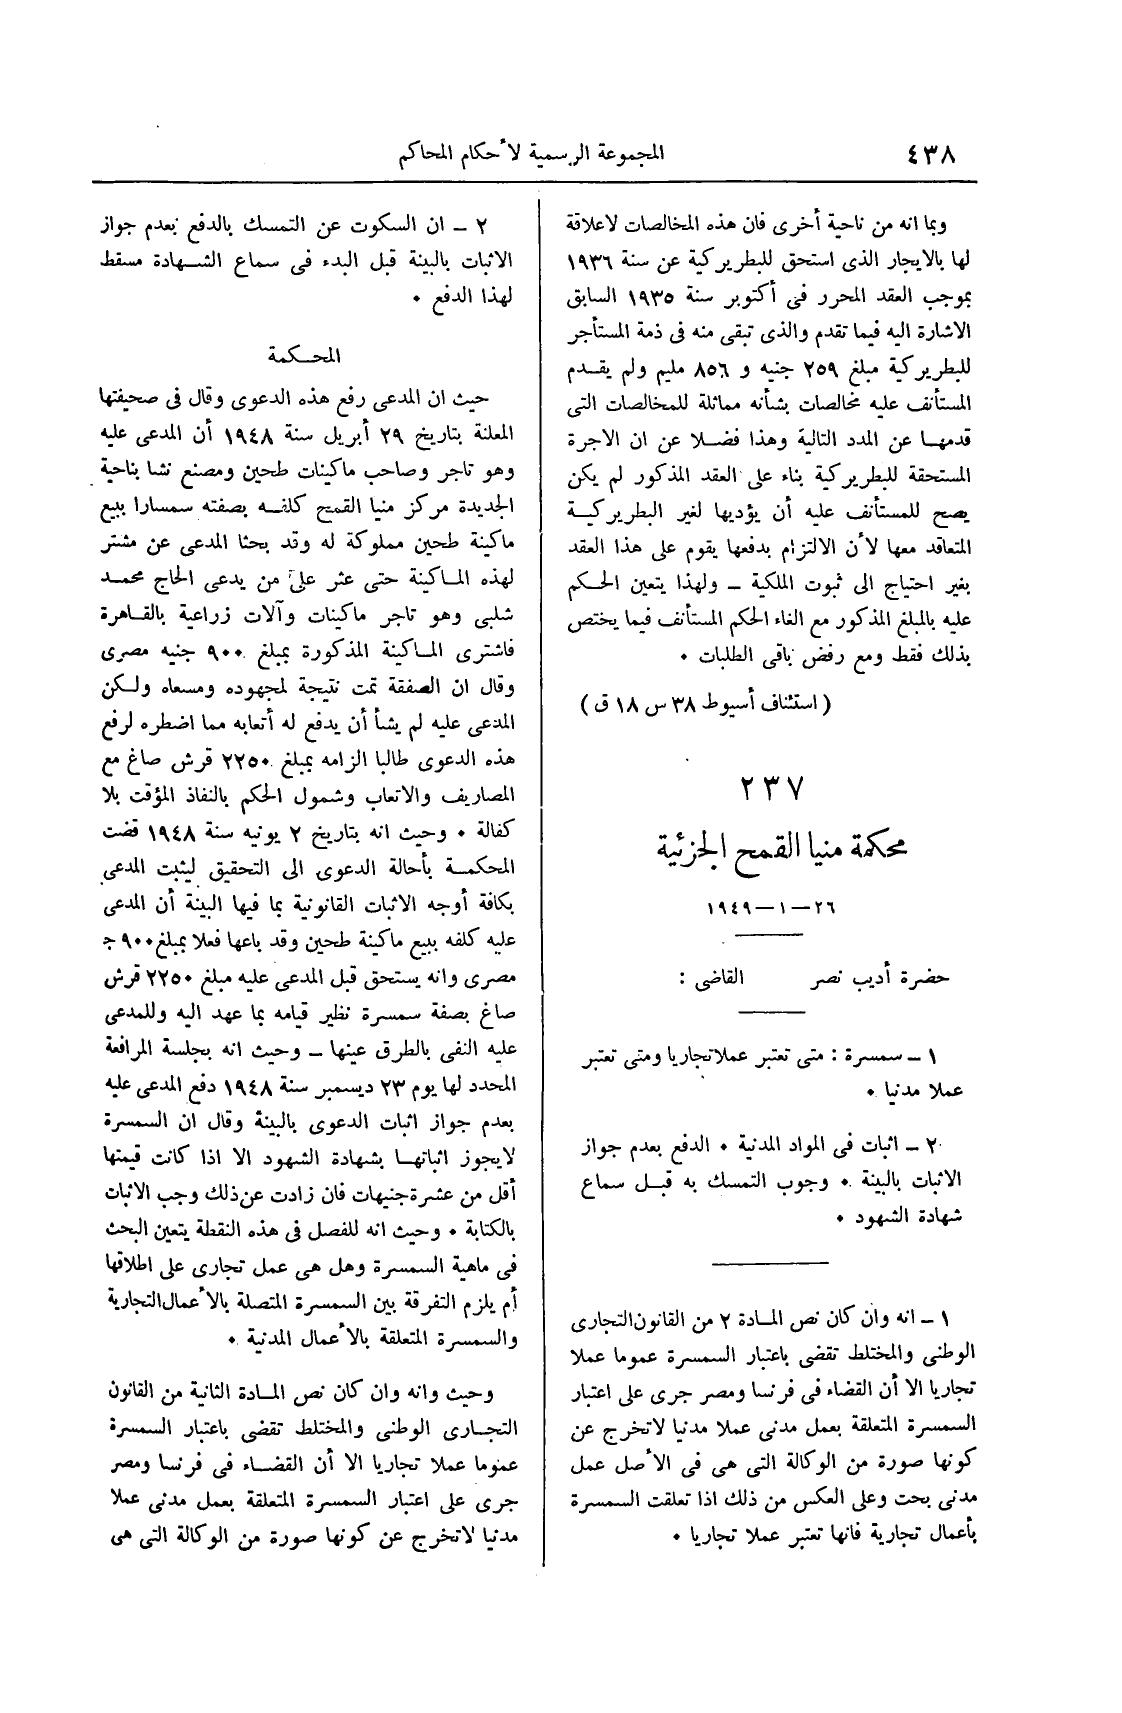 ٤٣٨
المجموعة الرسمية لأحكام المحاكم
وبما انه من ناحية أخرى فان هذه المخالصات لاعلاقة
لها بالايجار الذى استحق للبطريركية عن سنة ١٩٣٦
بموجب العقد المحرر فى أكتوبر سنة ١٩٣٥ السابق
الاشارة اليه فيما تقدم والذى تبقى منه فى ذمة المستأجر
للبطريركية مبلغ ٢٥٩ جنيه و ٨٥٦ مليم ولم يقـدم
المستأنف عليه مخالصات بشأنه مماثلة للمخالصات التى
قدمهـا عن المدد التالية وهذا فضـلا عن ان الاجرة
المستحقة للبطريركية بناء على العقد المذكور لم يكن
يصح للمستأنف عليه أن يؤديها لغير البطريركيـة
المتعاقد معها لأن الالتزام بدفعها يقوم على هذا العقد
بغير احتياج الى ثبوت الملكية ــ ولهذا يتعين الحـكم
عليه بالمبلغ المذكور مع الغاء الحكم المستأنف فيما يختص
بذلك فقط ومع رفض باقى الطلبات ٠
( استئناف أسيوط ٣٨ س ١٨ ق )
٢٣٧
محكمة منيا القمح الجزئية
٢٦ – ١ – ١٩٤٩
حضرة أديب نصر القاضى :
١ ــ سمسرة : متى تعتبر عملا تجاريا ومتى تعتبر
عملا مدنيا ٠
٢ ــ اثبات فى المواد المدنية ٠ الدفع بعدم جواز
الاثبات بالبينة ٠ وجوب التمسك به قبـل سماع
شهادة الشهود ٠
١ ــ انه وان كان نص المـادة ٢ من القانون التجارى
الوطنى والمختلط تقضى باعتبار السمسرة عموما عملا
تجاريا الا أن القضاء فى فرنسا ومصر جرى على اعتبار
السمسرة المتعلقة بعمل مدنى عملا مدنيا لاتخرج عن
كونها صورة من الوكالة التى هى فى الأصل عمل
مدنى بحت وعلى العكس من ذلك اذا تعلقت السمسرة
بأعمال تجارية فانها تعتبر عملا تجاريا ٠
٢ ــ ان السكوت عن التمسك بالدفع بعدم جواز
الاثبات بالبينة قبل البدء فى سماع الشهـادة مسقط
لهذا الدفع ٠
المحـكمة
حيث ان المدعى رفع هذه الدعوى وقال فى صحيفتها
المعلنة بتاريخ ٢٩ أبريل سنة ١٩٤٨ أن المدعى عليه
وهو تاجر وصاحب ماكينات طحين ومصنع نشا بناحية
الجديدة مركز منيا القمح كلفـه بصفته سمسارا ببيع
ماكينة طحين مملوكة له وقد بحثا المدعى عن مشتر
لهذه المـاكينة حتى عثر على من يدعى الحاج محمـد
شلبى وهو تاجر ماكينات وآلات زراعية بالقـاهرة
فاشترى المـاكينة المذكورة بمبلغ ٩٠٠ جنيه مصرى
وقال ان الصفقة تمت نتيجة لمجهوده ومسعاه ولـكن
المدعى عليه لم يشأ أن يدفع له أتعابه مما اضطره لرفع
هذه الدعوى طالبا الزامه بمبلغ ٢٢٥٠ قرش صاغ مع
المصاريف والاتعاب وشمول الحكم بالنفاذ المؤقت بلا
كفالة ٠ وحيث انه بتاريخ ٢ يونيه سنة ١٩٤٨ قضت
المحكمـة بأحالة الدعوى الى التحقيق ليثبت المدعى
بكافة أوجه الاثبات القانونية بما فيها البينة أن المدعى
عليه كلفه ببيع ماكينة طحين وقد باعها فعلا بمبلغ ٩٠٠ ج
مصرى وانه يستحق قبل المدعى عليه مبلغ ٢٢٥٠ قرش
صاغ بصفة سمسرة نظير قيامه بما عهد اليه وللمدعى
عليه النفى بالطرق عينها ــ وحيث انه بجلسة المرافعة
المحدد لها يوم ٢٣ ديسمبر سنة ١٩٤٨ دفع المدعى عليه
بعدم جواز اثبات الدعوى بالبينة وقال ان السمسرة
لايجوز اثباتهـا بشهادة الشهود الا اذا كانت قيمتها
أقل من عشرة جنيهات فان زادت عن ذلك وجب الاثبات
بالكتابة ٠ وحيث انه للفصل فى هذه النقطة يتعين البحث
فى ماهية السمسرة وهل هى عمل تجارى على اطلاقها
أم يلزم التفرقة بين السمسرة المتصلة بالأعمال التجارية
والسمسرة المتعلقة بالأعمال المدنية ٠
وحيث وانه وان كان نص المـادة الثانية من القانون
التجـارى الوطنى والمختلط تقضى باعتبار السمسرة
عموما عملا تجاريا الا أن القضـاء فى فرنسا ومصر
جرى على اعتبار السمسرة المتعلقة بعمل مدنى عملا
مدنيا لاتخرج عن كونها صورة من الوكالة التى هى